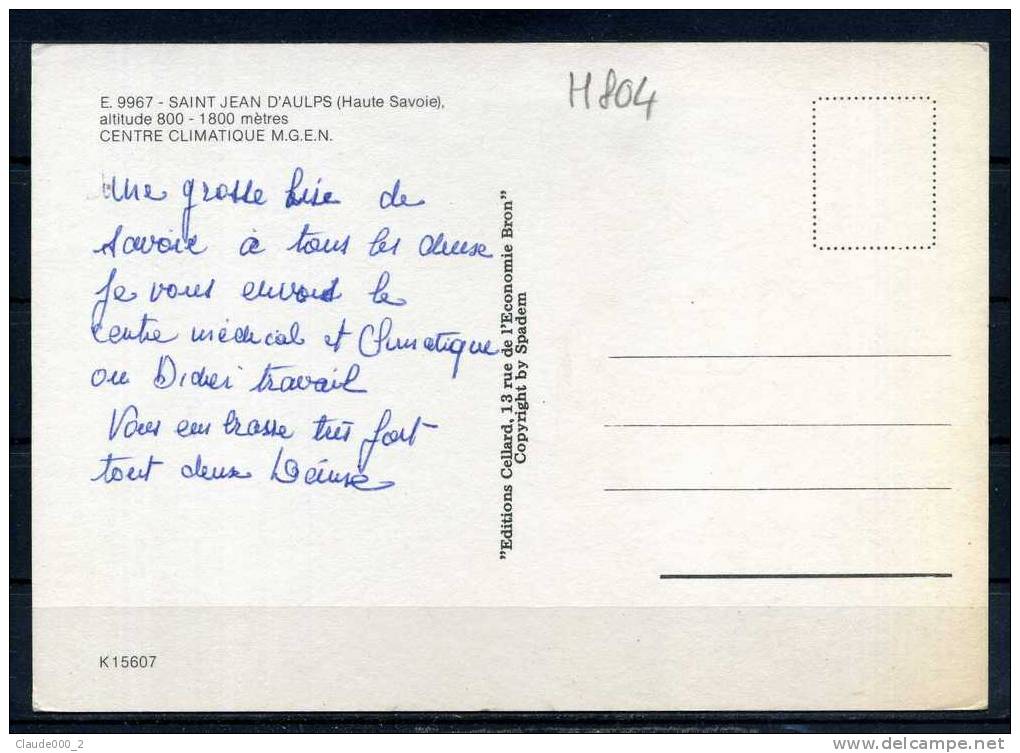 E. 9967 - SAINT JEAN D'AULPS (Haute Savoie),
altitude 800 - 1800 mètres
CENTRE CLIMATIQUE M.G.E.N.
H804
Une grosse bise de
Savoie à tous les deuse
Je vous envois le
centre médical et Climatique
ou Didier travail
Vous embrasse très fort
tout deux Denise
"Editions Cellard, 13 rue de l'Economie Bron"
Copyright by Spadem
K 15607
Claude000_2
delcampe.net